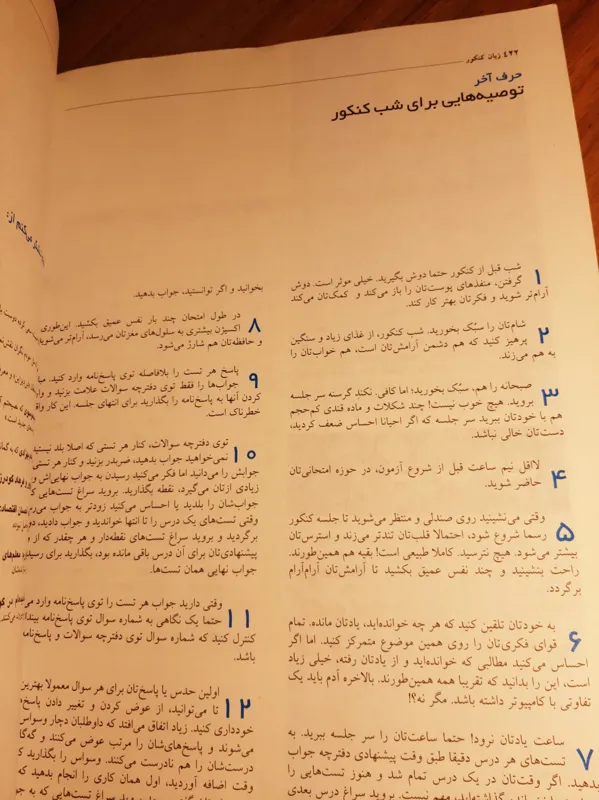 ۴۲۲ زبان کنکور
حرف آخر
توصیه‌هایی برای شب کنکور
۱
شب قبل از کنکور حتما دوش بگیرید. خیلی موثر است. دوش
گرفتن، منفذهای پوست‌تان را باز می‌کند و کمک‌تان می‌کند
آرام‌تر شوید و فکرتان بهتر کار کند.
۲
شام‌تان را سبُک بخورید. شب کنکور، از غذای زیاد و سنگین
پرهیز کنید که هم دشمن آرامش‌تان است، هم خواب‌تان را
به هم می‌زند.
۳
صبحانه را هم، سبُک بخورید؛ اما کافی. نکند گرسنه سر جلسه
بروید. هیچ خوب نیست! چند شکلات و ماده قندی کم‌حجم
هم با خودتان ببرید سر جلسه که اگر احیانا احساس ضعف کردید،
دست‌تان خالی نباشد.
۴
لااقل نیم ساعت قبل از شروع آزمون، در حوزه امتحانی‌تان
حاضر شوید.
۵
وقتی می‌نشینید روی صندلی و منتظر می‌شوید تا جلسه کنکور
رسما شروع شود، احتمالا قلب‌تان تندتر می‌زند و استرس‌تان
بیشتر می‌شود. هیچ نترسید. کاملا طبیعی است! بقیه هم همین‌طورند.
راحت بنشینید و چند نفس عمیق بکشید تا آرامش‌تان آرام‌آرام
برگردد.
۶
به خودتان تلقین کنید که هر چه خوانده‌اید، یادتان مانده. تمام
قوای فکری‌تان را روی همین موضوع متمرکز کنید. اما اگر
احساس می‌کنید مطالبی که خوانده‌اید و از یادتان رفته، خیلی زیاد
است، این را بدانید که تقریبا همه همین‌طورند. بالاخره آدم باید یک
تفاوتی با کامپیوتر داشته باشد. مگر نه؟!
۷
ساعت یادتان نرود! حتما ساعت‌تان را سر جلسه ببرید. به
تست‌های هر درس دقیقا طبق وقت پیشنهادی دفترچه جواب
بدهید. اگر وقت‌تان در یک درس تمام شد و هنوز تست‌هایی را
مهم نیست. بروید سراغ درس بعدی
بخوانید و اگر توانستید، جواب بدهید.
۸
در طول امتحان چند بار نفس عمیق بکشید. این‌طوری
اکسیژن بیشتری به سلول‌های مغزتان می‌رسد، آرام‌تر می‌شوید
و حافظه‌تان هم شارژ می‌شود.
۹
پاسخ هر تست را بلافاصله توی پاسخ‌نامه وارد کنید.
جواب‌ها را فقط توی دفترچه سوالات علامت بزنید و وارد
کردن آنها به پاسخ‌نامه را بگذارید برای انتهای جلسه. این کار واقعا
خطرناک است.
۱۰
توی دفترچه سوالات، کنار هر تستی که اصلا بلد نیستید
نمی‌خواهید جواب بدهید، ضربدر بزنید و کنار هر تستی
جوابش را می‌دانید اما فکر می‌کنید رسیدن به جواب نهایی‌اش
زیادی ازتان می‌گیرد، نقطه بگذارید. بروید سراغ تست‌هایی
جواب‌شان را بلدید یا احساس می‌کنید زودتر به جواب
وقتی تست‌های یک درس را تا انتها خواندید و جواب دادید،
برگردید و بروید سراغ تست‌های نقطه‌دار و هر چقدر که از
پیشنهادی‌تان برای آن درس باقی مانده بود، بگذارید برای رسیدن
جواب نهایی همان تست‌ها.
۱۱
وقتی دارید جواب هر تست را توی پاسخ‌نامه وارد
حتما یک نگاهی به شماره سوال توی پاسخ‌نامه
کنترل کنید که شماره سوال توی دفترچه سوالات و پاسخ‌نامه
باشد.
۱۲
اولین حدس یا پاسخ‌تان برای هر سوال معمولا بهترین
تا می‌توانید، از عوض کردن و تغییر دادن
خودداری کنید. زیاد اتفاق می‌افتد که داوطلبان دچار وسواس
می‌شوند و پاسخ‌های‌شان را مرتب عوض می‌کنند و
درست‌شان را هم نادرست می‌کنند. وسواس را بگذارید
وقت اضافه آوردید، اول همان کاری را انجام بدهید که
بروید سراغ تست‌هایی که به